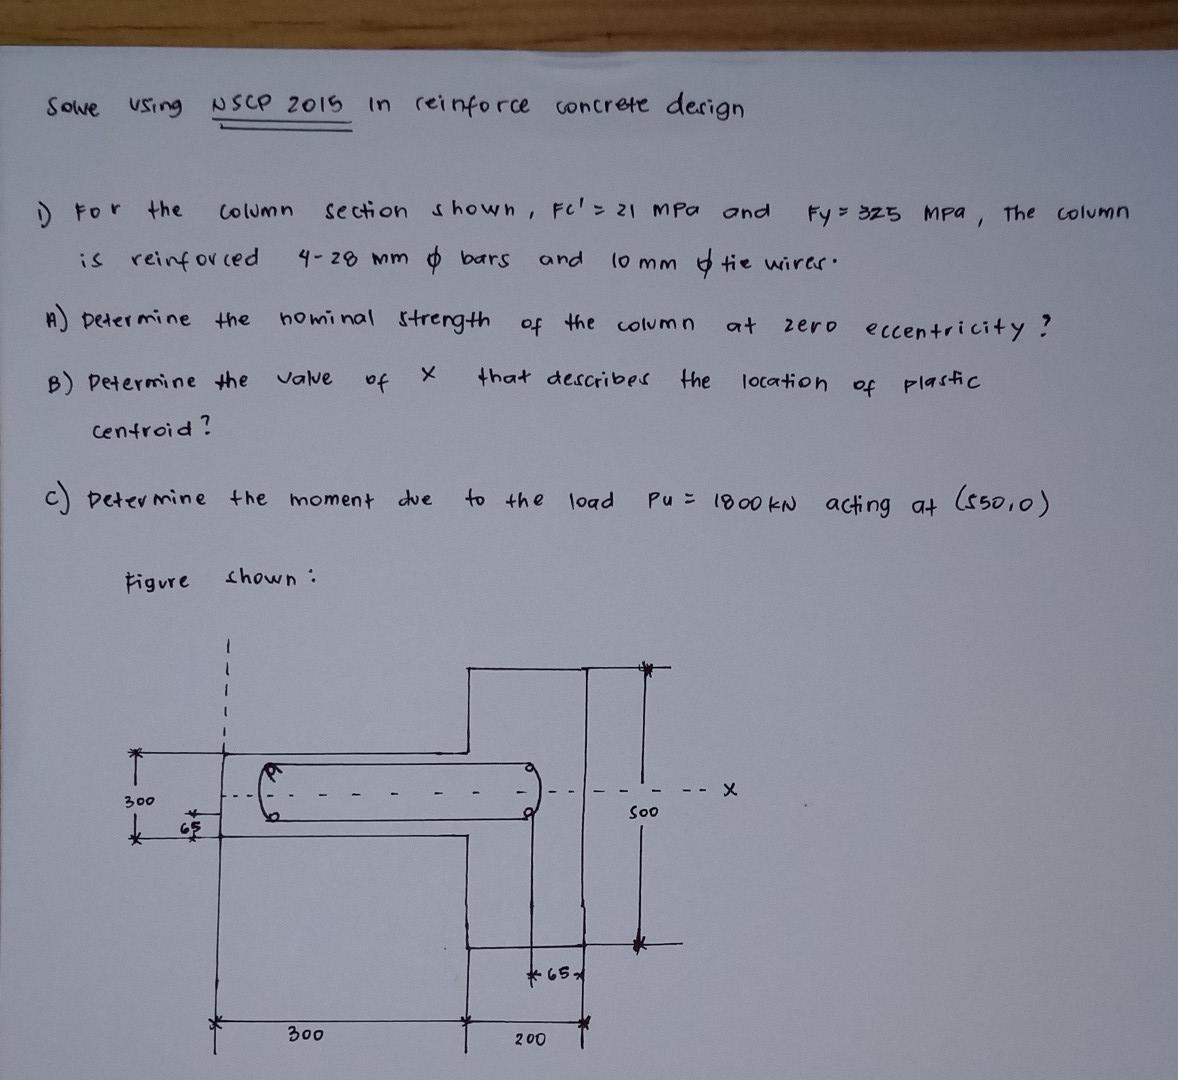 Solve using NSCP 2015 in reinforce concrete design
1) For the column section shown, Fc' = 21 MPa and Fy = 325 MPa, The column
is reinforced 4-28 mm ϕ bars and 10 mm ϕ tie wires.
A) Determine the nominal strength of the column at zero eccentricity?
B) Determine the value of x that describes the location of plastic
centroid?
C) Determine the moment due to the load Pu = 1800 kN acting at (550,0)
Figure shown:
300
65
500
X
65
300
200